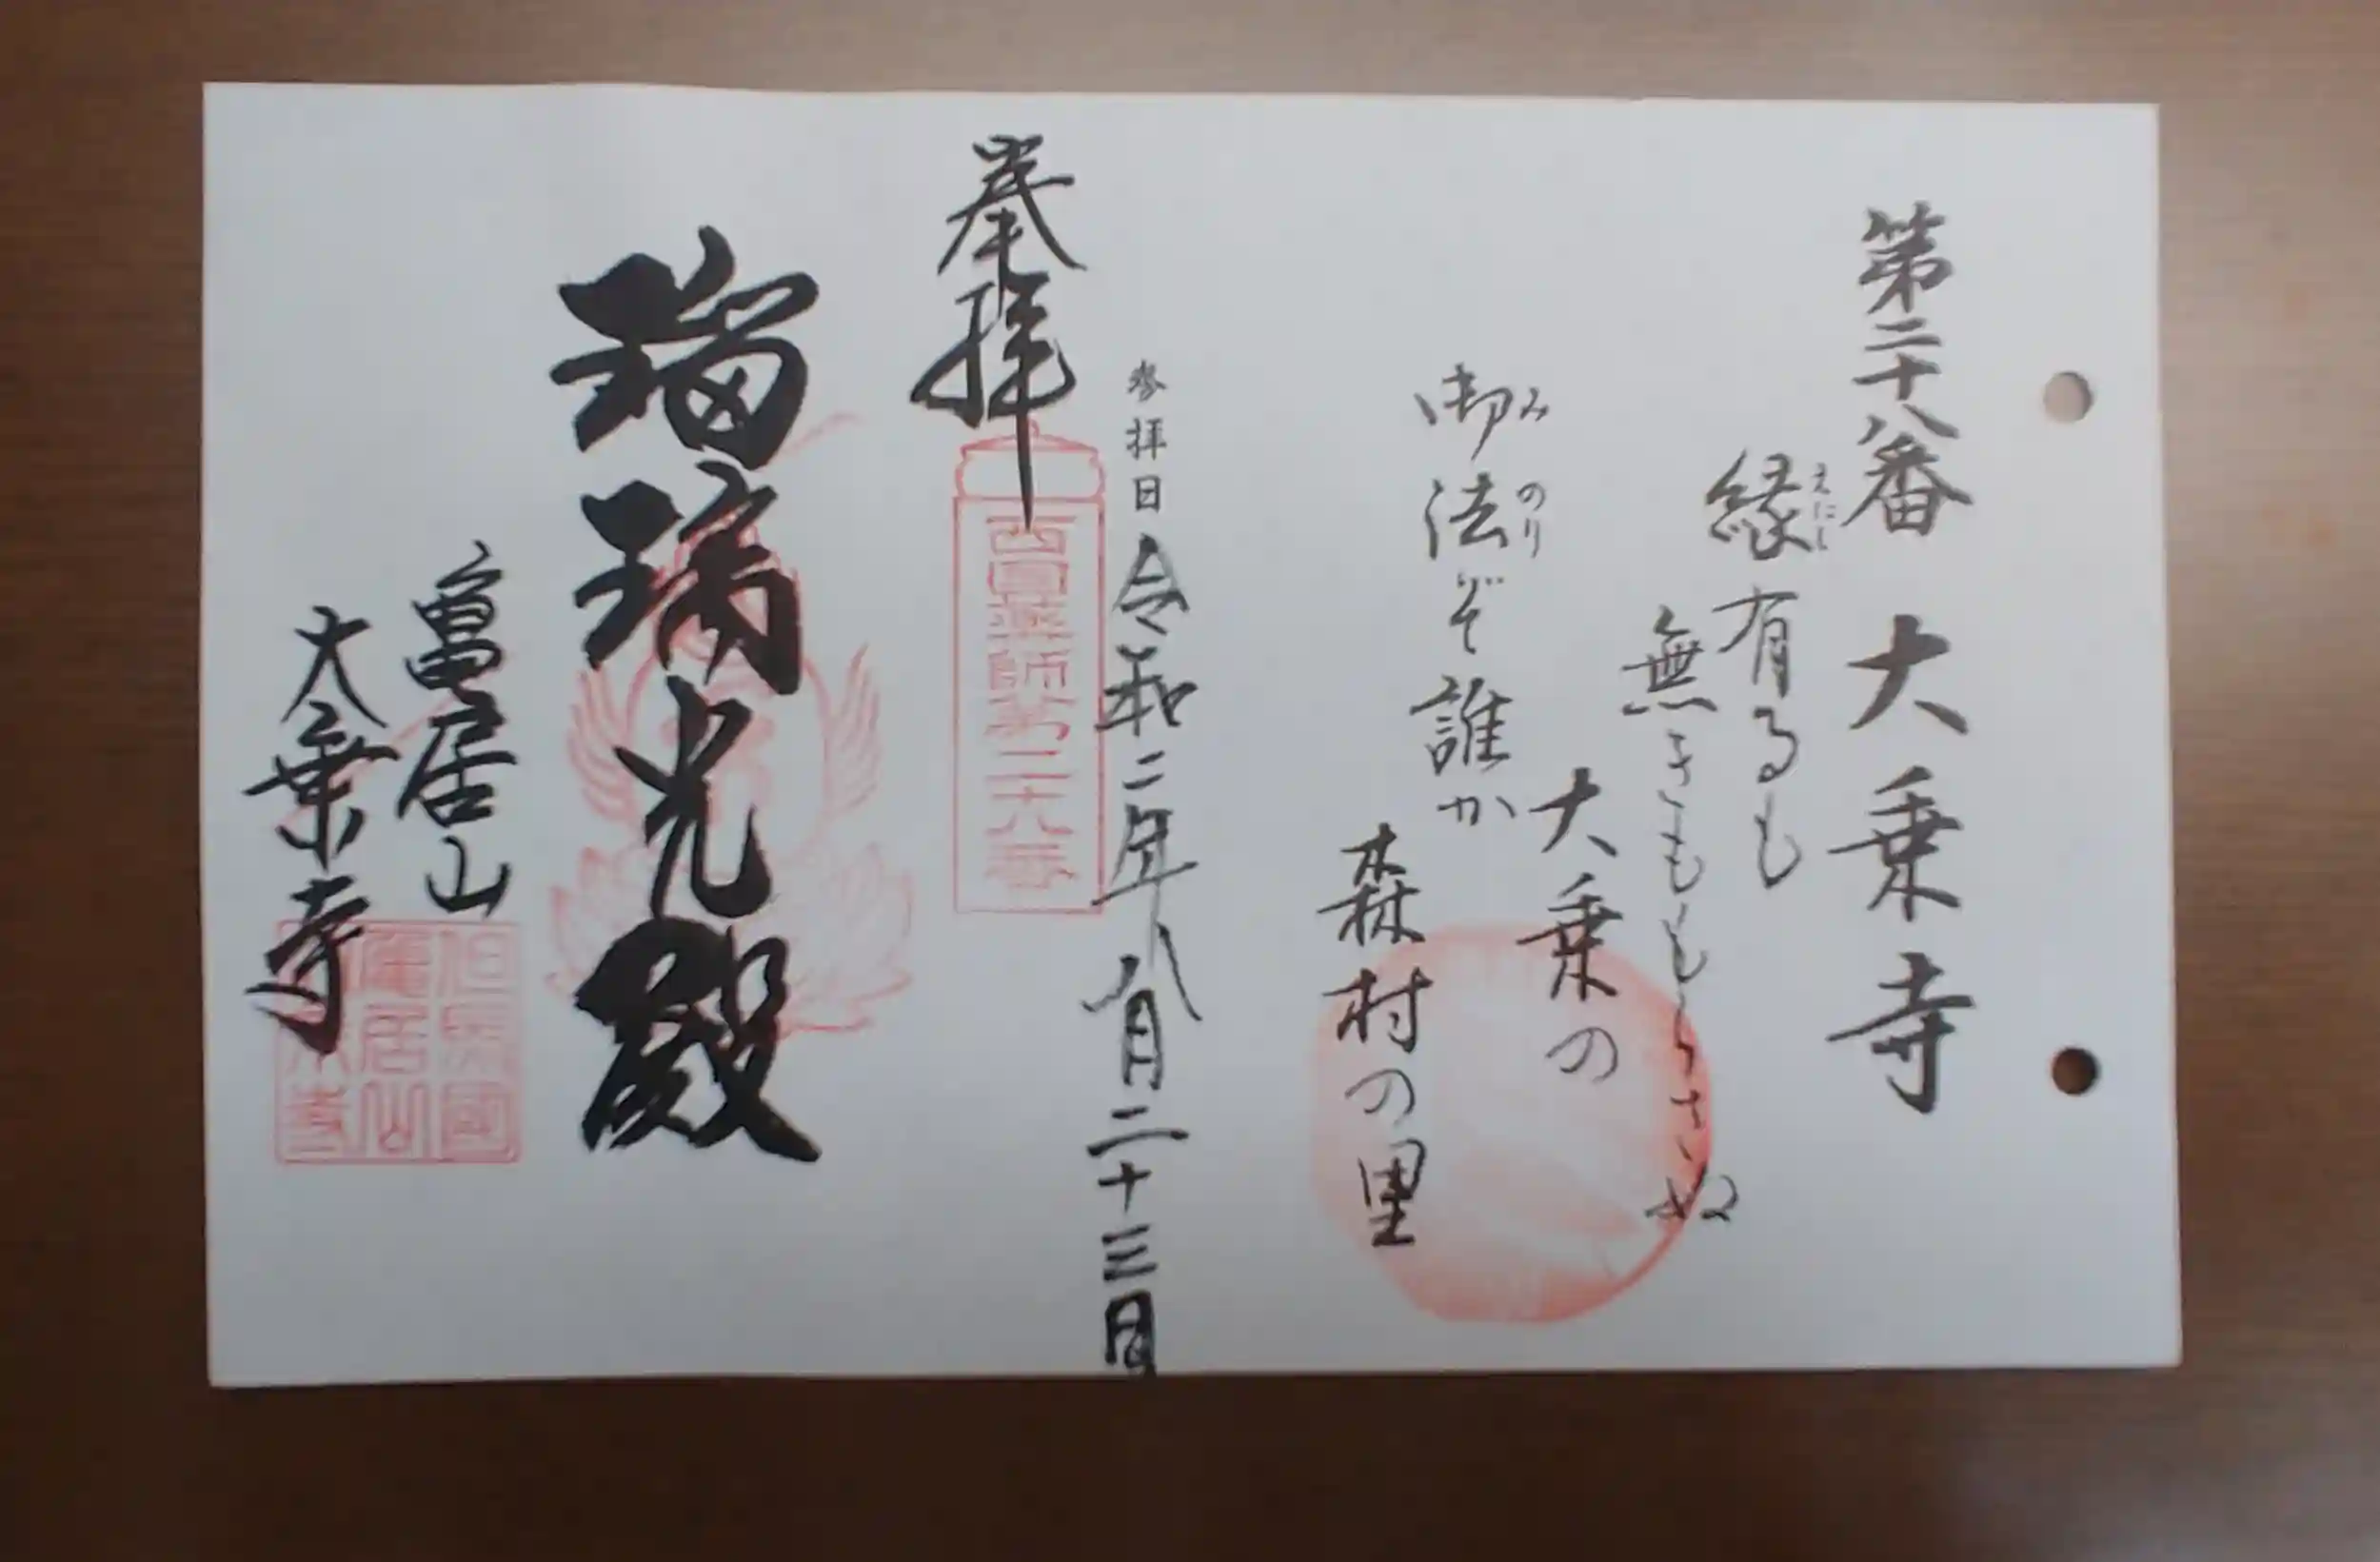 第二十八番 大乗寺
縁有るも
えにし
無きももらさぬ
大乗の
御法ぞ誰か
みのり
森村の里
参拝日 令和二年八月二十三日
奉拝
西國薬師第二十八番
瑠璃光殿
亀居山
大乗寺
但馬國
亀居山
大乗寺